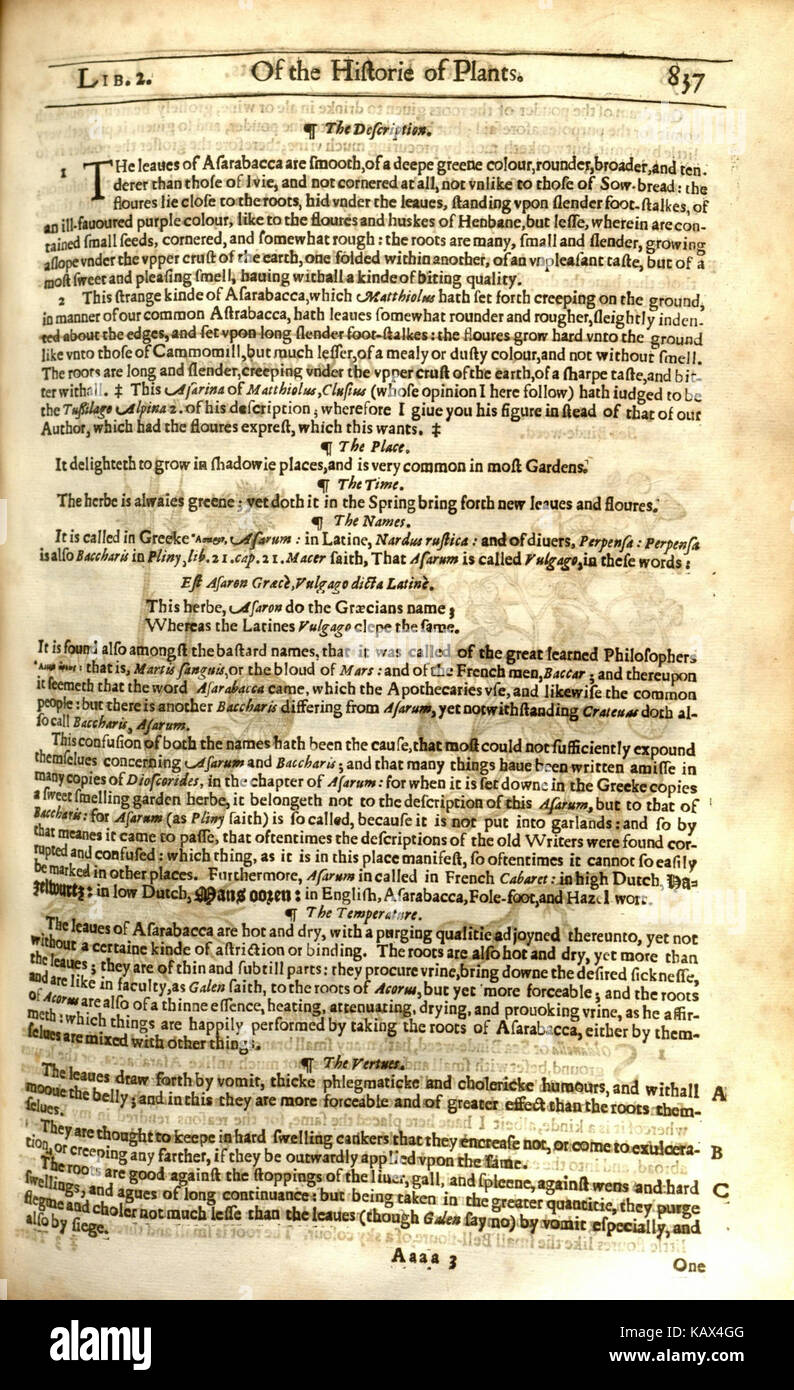 LIB. 2. Of the Hiſtorie of Plants. 837
¶ The Deſcription.
1 THe leaues of Aſarabacca are ſmooth, of a deepe greene colour, rounder, broader, and ten-
derer than thoſe of Ivie, and not cornered at all, not vnlike to thoſe of Sow-bread: the
floures lie cloſe to the roots, hid vnder the leaues, ſtanding vpon ſlender foot-ſtalkes, of
an ill-fauoured purple colour, like to the floures and huskes of Henbane, but leſſe, wherein are con-
tained ſmall ſeeds, cornered, and ſomewhat rough: the roots are many, ſmall and ſlender, growing
aſlope vnder the vpper cruſt of the earth, one folded within another, of an vnpleaſant taſte, but of a
moſt ſweet and pleaſing ſmell, hauing withall a kinde of biting quality.
2 This ſtrange kinde of Aſarabacca, which Matthiolus hath ſet forth creeping on the ground,
in manner of our common Aſtrabacca, hath leaues ſomewhat rounder and rougher, ſleightly inden-
ted about the edges, and ſet vpon long ſlender foot-ſtalkes: the floures grow hard vnto the ground
like vnto thoſe of Cammomill, but much leſſer, of a mealy or duſty colour, and not without ſmell.
The roots are long and ſlender, creeping vnder the vpper cruſt of the earth, of a ſharpe taſte, and bit-
ter withall. ‡ This Aſarina of Matthiolus, Cluſius (whoſe opinion I here follow) hath iudged to be
the Tuſſilago Alpina 2. of his deſcription; wherefore I giue you his figure in ſtead of that of our
Author, which had the floures expreſt, which this wants. ‡
¶ The Place.
It delighteth to grow in ſhadowie places, and is very common in moſt Gardens.
¶ The Time.
The herbe is alwaies greene: yet doth it in the Spring bring forth new leaues and floures.
¶ The Names.
It is called in Greeke Aſarum: in Latine, Nardus ruſtica: and of diuers, Perpenſa: Perpenſa
is alſo Baccharis in Pliny, lib. 21. cap. 21. Macer ſaith, That Aſarum is called Vulgago, in theſe words:
Eſt Aſaron Græcè, Vulgago dicta Latinè.
This herbe, Aſaron do the Græcians name;
Whereas the Latines Vulgago clepe the ſame.
It is found alſo amongſt the baſtard names, that it was called of the great learned Philoſophers
: that is, Martis ſanguis, or the bloud of Mars: and of the French men, Baccar; and thereupon
it ſeemeth that the word Aſarabacca came, which the Apothecaries vſe, and likewiſe the common
people: but there is another Baccharis differing from Aſarum, yet notwithſtanding Crateuas doth al-
ſo call Baccharis, Aſarum.
This confuſion of both the names hath been the cauſe, that moſt could not ſufficiently expound
themſelues concerning Aſarum and Baccharis; and that many things haue been written amiſſe in
many copies of Dioſcorides, in the chapter of Aſarum: for when it is ſet downe in the Greeke copies
a ſweet ſmelling garden herbe, it belongeth not to the deſcription of this Aſarum, but to that of
Baccharis: for Aſarum (as Pliny ſaith) is ſo called, becauſe it is not put into garlands: and ſo by
that meanes it came to paſſe, that oftentimes the deſcriptions of the old Writers were found cor-
rupted and confuſed: which thing, as it is in this place manifeſt, ſo oftentimes it cannot ſo eaſily
be marked in other places. Furthermore, Aſarum in called in French Cabaret: in high Dutch, Ha-
zelwurtz: in low Dutch, Mans ooren: in English, Aſarabacca, Fole-foot, and Hazel wort.
¶ The Temperature.
The leaues of Aſarabacca are hot and dry, with a purging qualitie adjoyned thereunto, yet not
without a certaine kinde of aſtriction or binding. The roots are alſo hot and dry, yet more than
the leaues; they are of thin and ſubtill parts: they procure vrine, bring downe the deſired ſickneſſe,
and are like in faculty, as Galen ſaith, to the roots of Acorus, but yet more forceable; and the roots
of Acorus are alſo of a thinne eſſence, heating, attenuating, drying, and prouoking vrine, as he affir-
meth: which things are happily performed by taking the roots of Aſarabacca, either by them-
ſelues are mixed with other things.
¶ The Vertues.
The leaues draw forth by vomit, thicke phlegmaticke and cholericke humours, and withall A
mooue the belly; and in this they are more forceable and of greater effect than the roots them-
ſelues.
They are thought to keepe in hard ſwelling cankers that they encreaſe not, or come to exulcera- B
tion, or creeping any farther, if they be outwardly applied vpon the ſame.
The roots are good againſt the ſtoppings of the liuer, gall, and ſpleene, againſt wens and hard C
ſwellings, and agues of long continuance: but being taken in the greater quantitie, they purge
flegme and choler not much leſſe than the leaues (though Galen ſay no) by vomit eſpecially, and
alſo by ſiege.
Aaaa 3 One
alamy
Image ID: KAX4GG
www.alamy.com